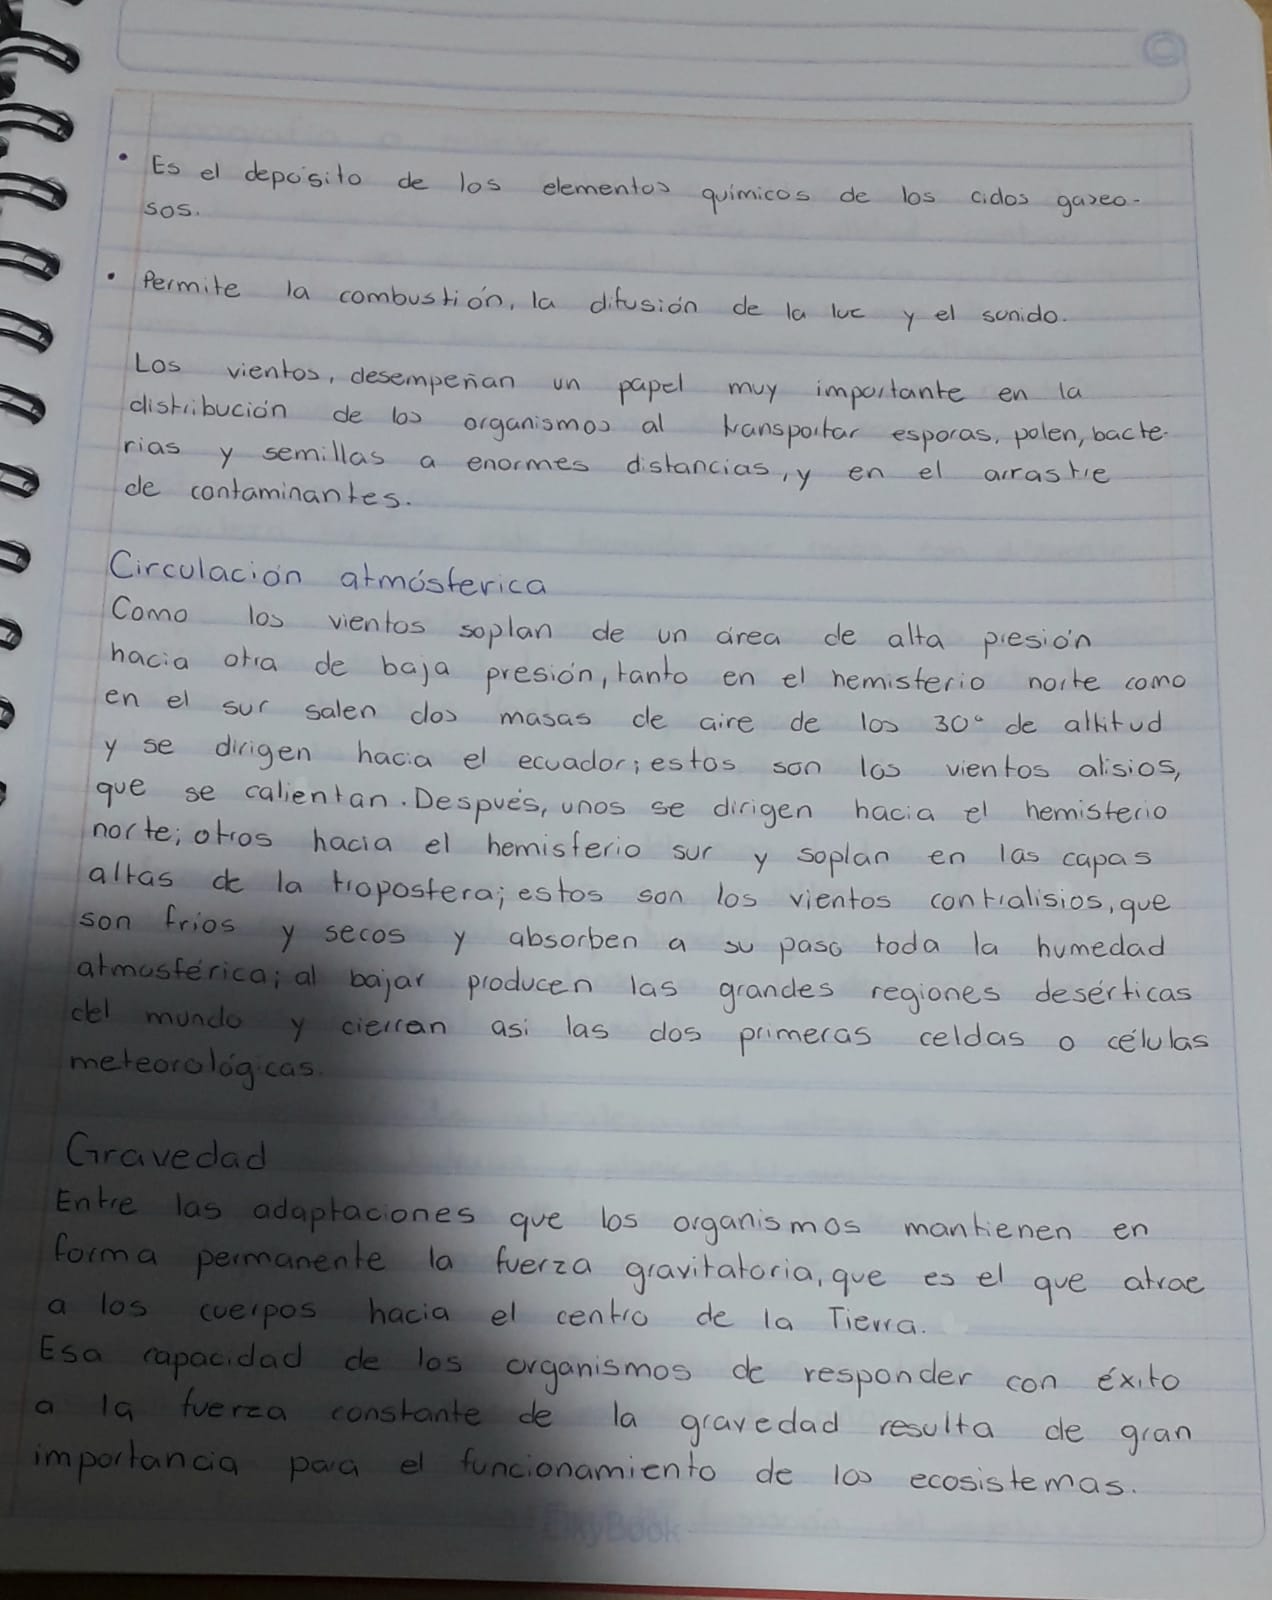 • Es el depósito de los elementos químicos de los ciclos gaseo-
sos.
• Permite la combustión, la difusión de la luz y el sonido.
Los vientos, desempeñan un papel muy importante en la
distribución de los organismos al transportar esporas, polen, bacte-
rias y semillas a enormes distancias, y en el arrastre
de contaminantes.
Circulación atmósferica
Como los vientos soplan de un área de alta presión
hacia otra de baja presión, tanto en el hemisferio norte como
en el sur salen dos masas de aire de los 30° de altitud
y se dirigen hacia el ecuador; estos son los vientos alisios,
que se calientan. Después, unos se dirigen hacia el hemisferio
norte; otros hacia el hemisferio sur y soplan en las capas
altas de la troposfera; estos son los vientos contralisios, que
son fríos y secos y absorben a su paso toda la humedad
atmosférica; al bajar producen las grandes regiones desérticas
del mundo y cierran asi las dos primeras celdas o células
meteorológicas.
Gravedad
Entre las adaptaciones que los organismos mantienen en
forma permanente la fuerza gravitatoria, que es el que atrae
a los cuerpos hacia el centro de la Tierra.
Esa capacidad de los organismos de responder con éxito
a la fuerza constante de la gravedad resulta de gran
importancia para el funcionamiento de los ecosistemas.